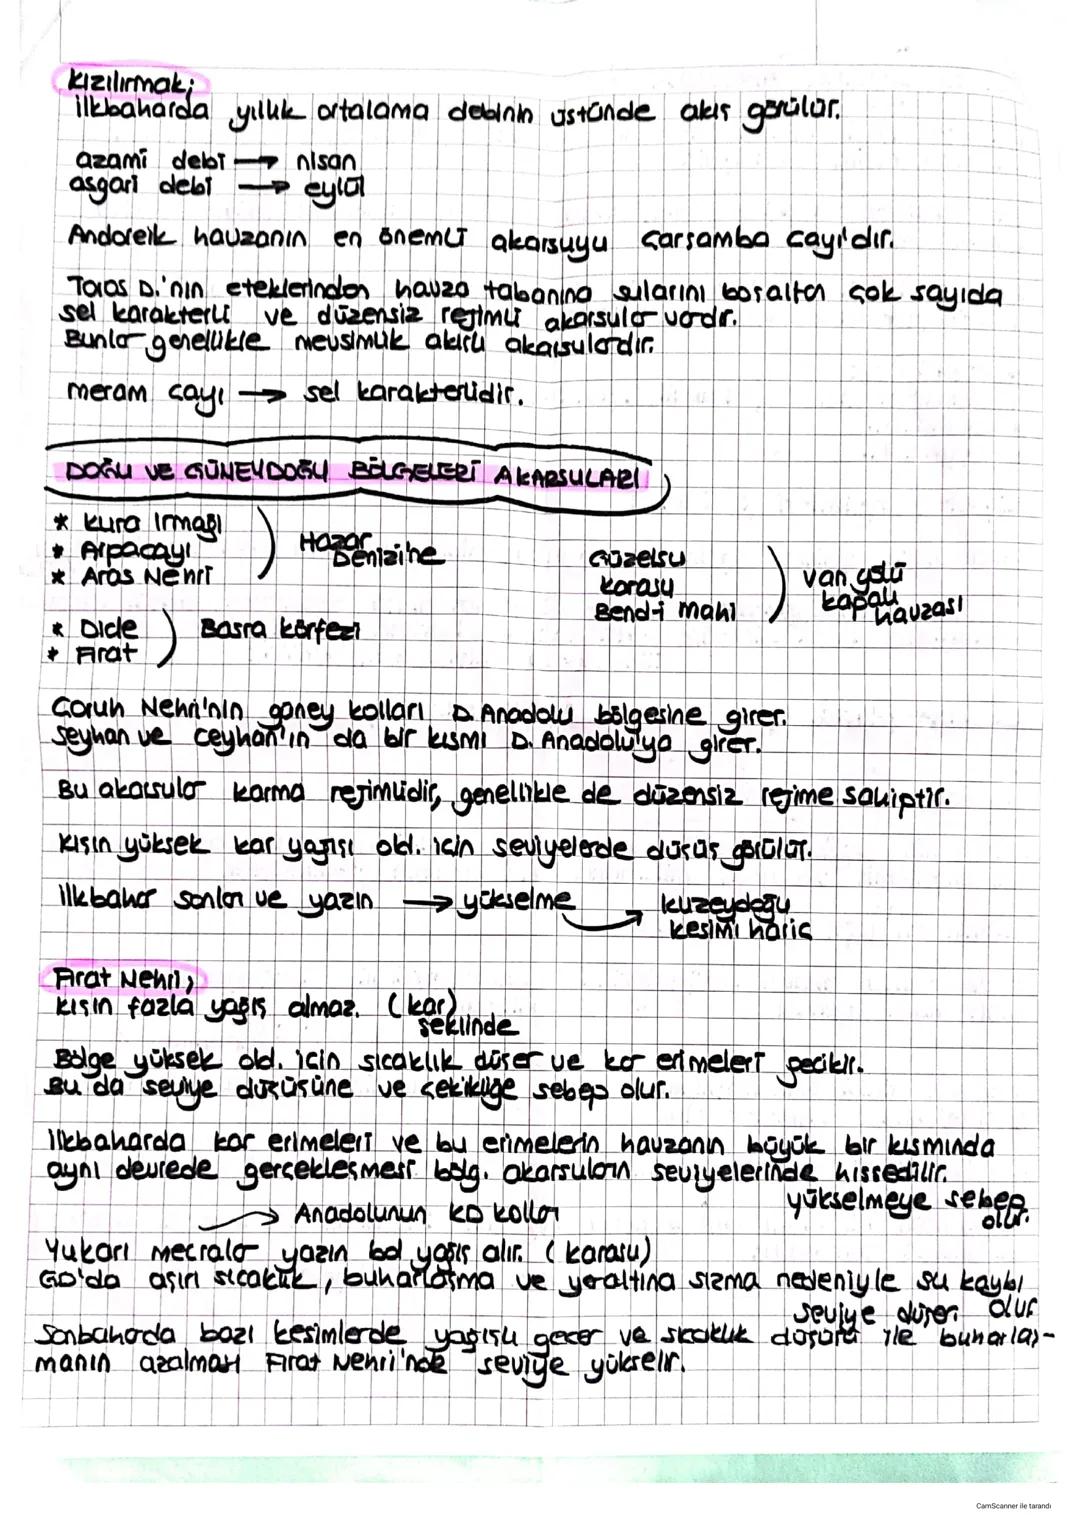 Kızılırmak;
ilkbaharda yıllık ortalama debinin üstünde akış görülür.
azami debi → nisan
asgari debi → eylül
Andoreik havzanın en önemli akarsuyu Çarşamba çayı'dır.
Toros D.'nın eteklerinden havza tabanına sularını boşaltan çok sayıda
sel karakterli ve düzensiz rejimli akarsular vardır.
Bunlar genellikle mevsimlik akışlı akarsulardır.
meram çayı → sel karakterlidir.
DOĞU VE GÜNEYDOĞU BÖLGELERİ AKARSULARI
* Kura Irmağı
* Arpaçayı
* Aras Nehri
Hazar
Denizi'ne
Güzelsu
Karasu
Bend-i mahi
van gölü
kapalı
havzası
* Dicle
* Fırat
Basra körfezi
Çoruh Nehri'nin güney kolları D. Anadolu bölgesine girer.
Seyhan ve Ceyhan'ın da bir kısmı D. Anadolu'ya girer.
Bu akarsular karma rejimlidir, genellikle de düzensiz rejime sahiptir.
Kışın yüksek kar yağışı old. için seviyelerde düşüş görülür.
ilkbahar sonları ve yazın → yükselme → kuzeydoğu
kesimi hariç
Fırat Nehri;
kışın fazla yağış almaz. (kar)
şeklinde
Bölge yüksek old. için sıcaklık düşer ve kar erimeleri gecikir.
Bu da seviye düşüşüne ve çekikliğe sebep olur.
ilkbaharda kar erimeleri ve bu erimelerin havzanın büyük bir kısmında
aynı devrede gerçekleşmesi bölg. akarsuların seviyelerinde hissedilir.
yükselmeye sebep
olur.
→ Anadolunun KD kolları
Yukarı mecralar yazın bol yağış alır. (karasu)
GD'da aşırı sıcaklık, buharlaşma ve yeraltına sızma nedeniyle su kaybı
olur
seviye düşer.
Sonbaharda bazı kesimlerde yağışlı geçer ve sıcaklık düşüşü ile buharlaş-
manın azalması Fırat Nehri'nde seviye yükselir.
CamScanner ile tarandı